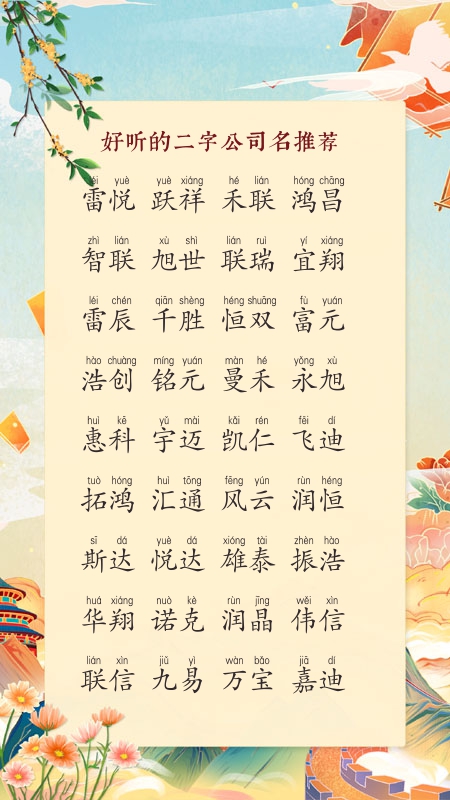 好听的二字公司名推荐
léi yuè yuè xiáng hé lián hóng chāng
雷悦 跃祥 禾联 鸿昌
zhì lián xù shì lián ruì yí xiáng
智联 旭世 联瑞 宜翔
léi chén qiān shèng héng shuāng fù yuán
雷辰 千胜 恒双 富元
hào chuàng míng yuán màn hé yǒng xù
浩创 铭元 曼禾 永旭
huì kē yǔ mài kǎi rén fēi dí
惠科 宇迈 凯仁 飞迪
tuò hóng huì tōng fēng yún rùn héng
拓鸿 汇通 风云 润恒
sī dá yuè dá xióng tài zhèn hào
斯达 悦达 雄泰 振浩
huá xiáng nuò kè rùn jīng wěi xìn
华翔 诺克 润晶 伟信
lián xìn jiǔ yì wàn bǎo jiā dí
联信 九易 万宝 嘉迪